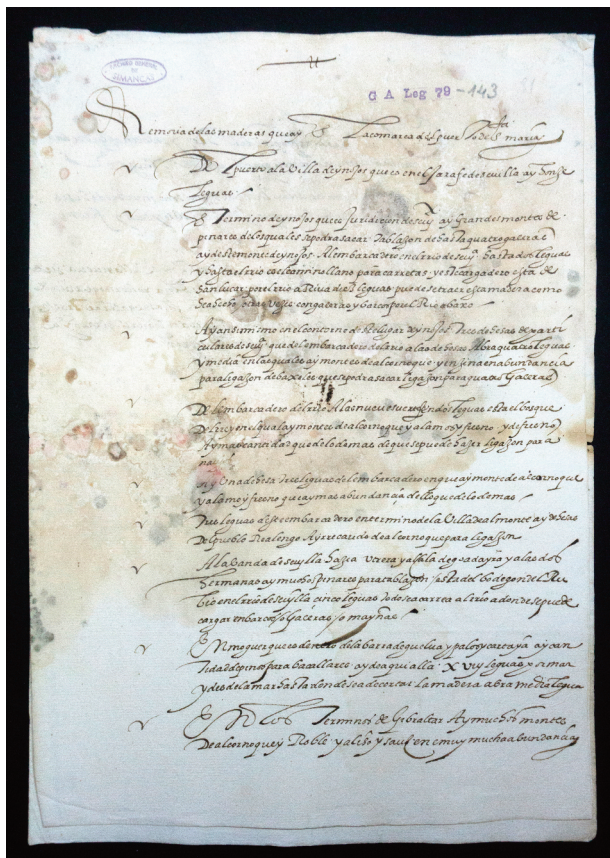 ARCHIVO GENERAL
DE
SIMANCAS
G A Leg 79 -143
Memoria de las maderas que ay En La comarca del puerto de sta maria
Del puerto a la Villa de ynojos que es en el Jarafe de seuilla ay honze
leguas
En Termino de ynojos que es Juridicion de seuª ay grandes montes de
pinares de los quales se podra sacar tablazon de hasta quatro galeras
ay deste monte de ynojos Al embarcadero en el rrio de seuª hasta dos leguas
y hasta el rrio es el camino llano para carretas y este cargadero esta de
sanlucar por el rrio aRiua leguas puedese traer esta madera como
se a hecho otras vezes con galeras y barcon por el Rio abaxo
Ay ansi mismo en el contorno deste lugar de ynojos tres dehesas de parti
culares de seuª que del embarcadero del rrio a las dehesas Abra quatro leguas
y media en las quales ay montes de alcornoque y enzina en abundancia
para ligazon de baxeles que se podra sacar ligazon para galeras
Del embarcadero del rrio dos leguas esta el bosque
del rrey en el qual ay montes de alcornoque y alamos y fresno
Ay mas cantidad que de lo demas de que se puede hazer ligazon para
Ay Vna dehesa tres leguas del embarcadero en que ay monte de alcornoque
y alamo y fresno que ay mas abundancia dello que de lo demas
Tres leguas deste embarcadero en termino de la Villa de almonte ay dehesas
del pueblo Realengo Ay rrecaudo de alcornoque para ligazon
A la banda de seuilla hazia Vtrera y alcala de guadayra y a las dos
hermanas ay muchos pinares para tablazon hasta el bodegon del Ru
bio en el rrio de seuilla cinco leguas todo se acarrea al rrio a donde se puede
cargar en barcos o Galeras o
En moguer que es dentro de la barra de guelua y palos y cartaya ay can
tidad de pinos para ay de aqui alla XVI leguas por mar
y desde la mar hasta donde se a de cortar la madera abra media legua
En los Terminos de Gibraltar Ay muchos montes
de alcornoque y Roble y aliso y sauz en muy mucha abundancia